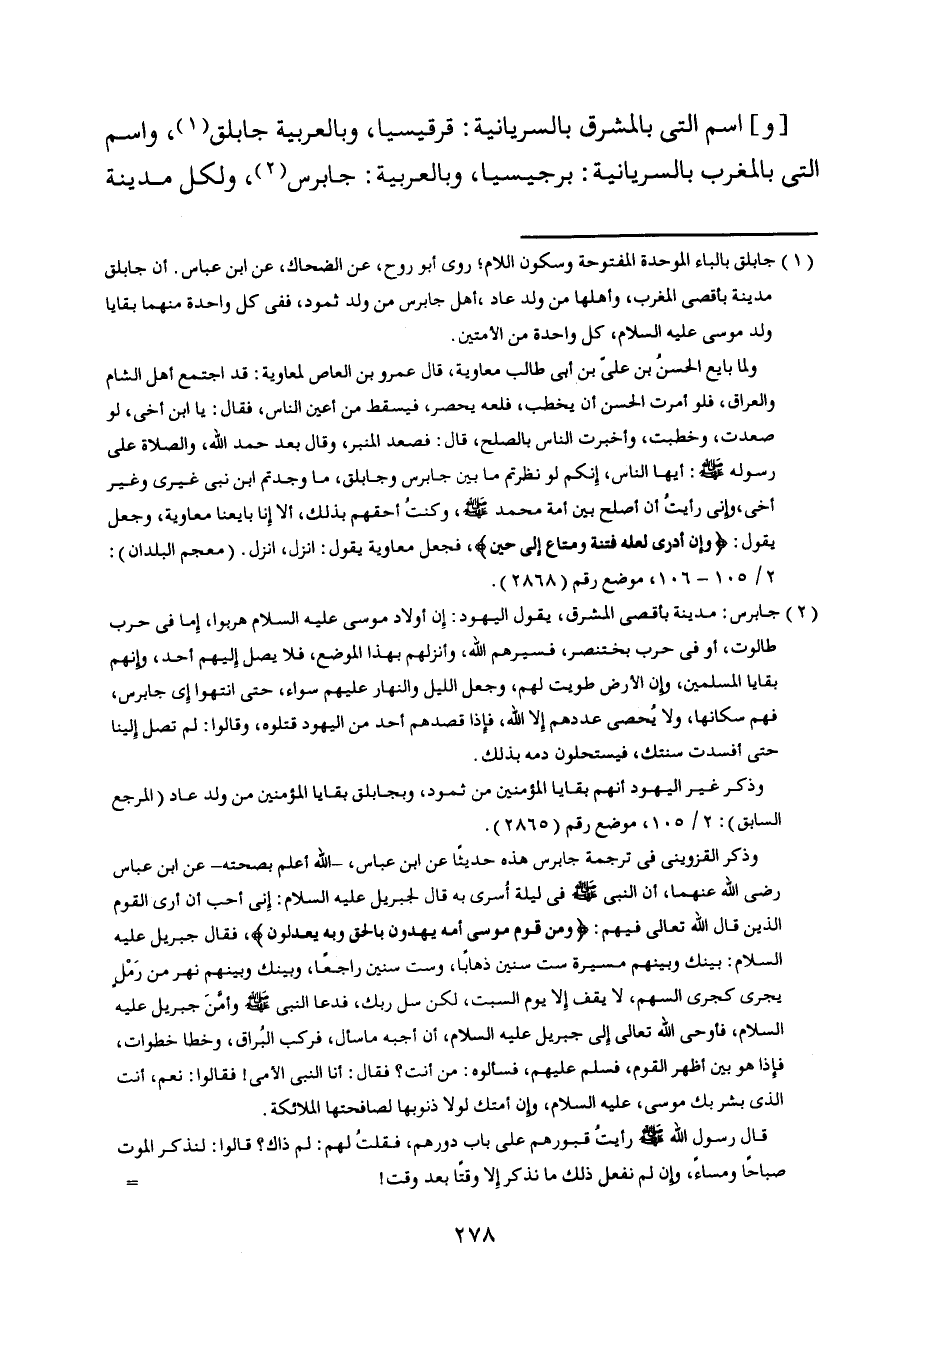 [و] اسم التى بالمشرق بالسريانية: قرقيسيا، وبالعربية جابلق(١)، واسم
التى بالمغرب بالسريانية: برجيسيا، وبالعربية: جابرس(٢)، ولكل مدينة
(١) جابلق بالباء الموحدة المفتوحة وسكون اللام؛ روى أبو روح، عن الضحاك، عن ابن عباس. أن جابلق
مدينة بأقصى المغرب، وأهلها من ولد عاد ،أهل جابرس من ولد ثمود، ففى كل واحدة منهما بقايا
ولد موسى عليه السلام، كل واحدة من الأمتين.
ولما بايع الحسنُ بن علىّ بن أبى طالب معاوية، قال عمرو بن العاص لمعاوية: قد اجتمع أهل الشام
والعراق، فلو أمرت الحسن أن يخطب، فلعه يحصر، فيسقط من أعين الناس، فقال: يا ابن أخى، لو
صعدت، وخطبت، وأخبرت الناس بالصلح، قال: فصعد المنبر، وقال بعد حمد الله، والصلاة على
رسوله ﷺ: أيها الناس، إنكم لو نظرتم ما بين جابرس وجابلق، ما وجدتم ابن نبى غيرى وغير
أخى،وإنى رأيتُ أن أصلح بين أمة محمد ﷺ، وكنتُ أحقهم بذلك، ألا إنا بايعنا معاوية، وجعل
يقول: ﴿وإن أدرى لعله فتنة ومتاع إلى حين﴾، فجعل معاوية يقول: انزل، انزل. (معجم البلدان):
٢/ ١٠٥ - ١٠٦، موضع رقم (٢٨٦٨).
(٢) جابرس: مدينة بأقصى المشرق، يقول اليهود: إن أولاد موسى عليه السلام هربوا، إما فى حرب
طالوت، أو فى حرب بختنصر، فسيرهم الله، وأنزلهم بهذا الموضع، فلا يصل إليهم أحد، وإنهم
بقايا المسلمين، وإن الأرض طويت لهم، وجعل الليل والنهار عليهم سواء، حتى انتهوا إى جابرس،
فهم سكانها، ولا يُحصى عددهم إلا الله، فإذا قصدهم أحد من اليهود قتلوه، وقالوا: لم تصل إلينا
حتى أفسدت سنتك، فيستحلون دمه بذلك.
وذكر غير اليهود أنهم بقايا المؤمنين من ثمود، وبجابلق بقايا المؤمنين من ولد عاد (المرجع
السابق): ٢/ ١٠٥، موضع رقم (٢٨٦٥).
وذكر القزوينى فى ترجمة جابرس هذه حديثًا عن ابن عباس، -الله أعلم بصحته- عن ابن عباس
رضى الله عنهما، أن النبى ﷺ فى ليلة أُسرى به قال لجبريل عليه السلام: إنى أحب أن أرى القوم
الذين قال الله تعالى فيهم: ﴿ومن قوم موسى أمه يهدون بالحق وبه يعدلون﴾، فقال جبريل عليه
السلام: بينك وبينهم مسيرة ست سنين ذهابًا، وست سنين راجعًا، وبينك وبينهم نهر من رَمْلٍ
يجرى كجرى السهم، لا يقف إلا يوم السبت، لكن سل ربك، فدعا النبى ﷺ وأمَّنَ جبريل عليه
السلام، فأوحى الله تعالى إلى جبريل عليه السلام، أن أجبه ماسأل، فركب البُراق، وخطا خطوات،
فإذا هو بين أظهر القوم، فسلم عليهم، فسألوه: من أنت؟ فقال: أنا النبى الأمى! فقالوا: نعم، أنت
الذى بشر بك موسى، عليه السلام، وإن أمتك لولا ذنوبها لصافحتها الملائكة.
قال رسول الله ﷺ رأيتُ قبورهم على باب دورهم، فقلتُ لهم: لم ذاك؟ قالوا: لنذكر الموت
صباحًا ومساءً، وإن لم نفعل ذلك ما نذكر إلا وقتًا بعد وقت! =
٢٧٨